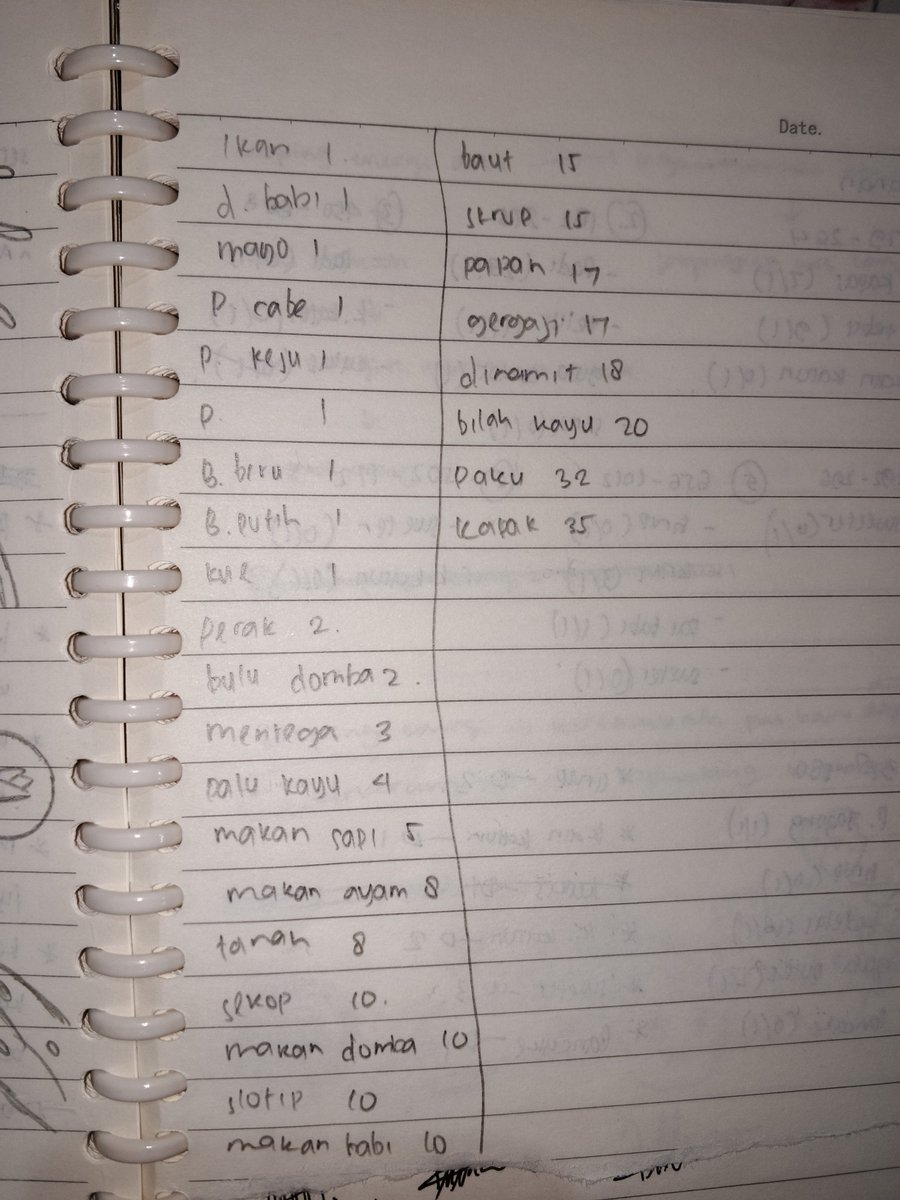 Date.
Ikan 1.
d. babi 1
mayo 1
P cabe 1
P. keju 1
P. 1
B. biru 1
B. putih 1
kue 1
perak 2.
bulu domba 2.
mentega 3
palu kayu 4
makan sapi 5
makan ayam 8
tanah 8
sekop 10.
makan domba 10
slotip 10
makan babi 10
baut 15
skrup 15
papan 17
gergaji 17
dinamit 18
bilah kayu 20
paku 32
kapak 35